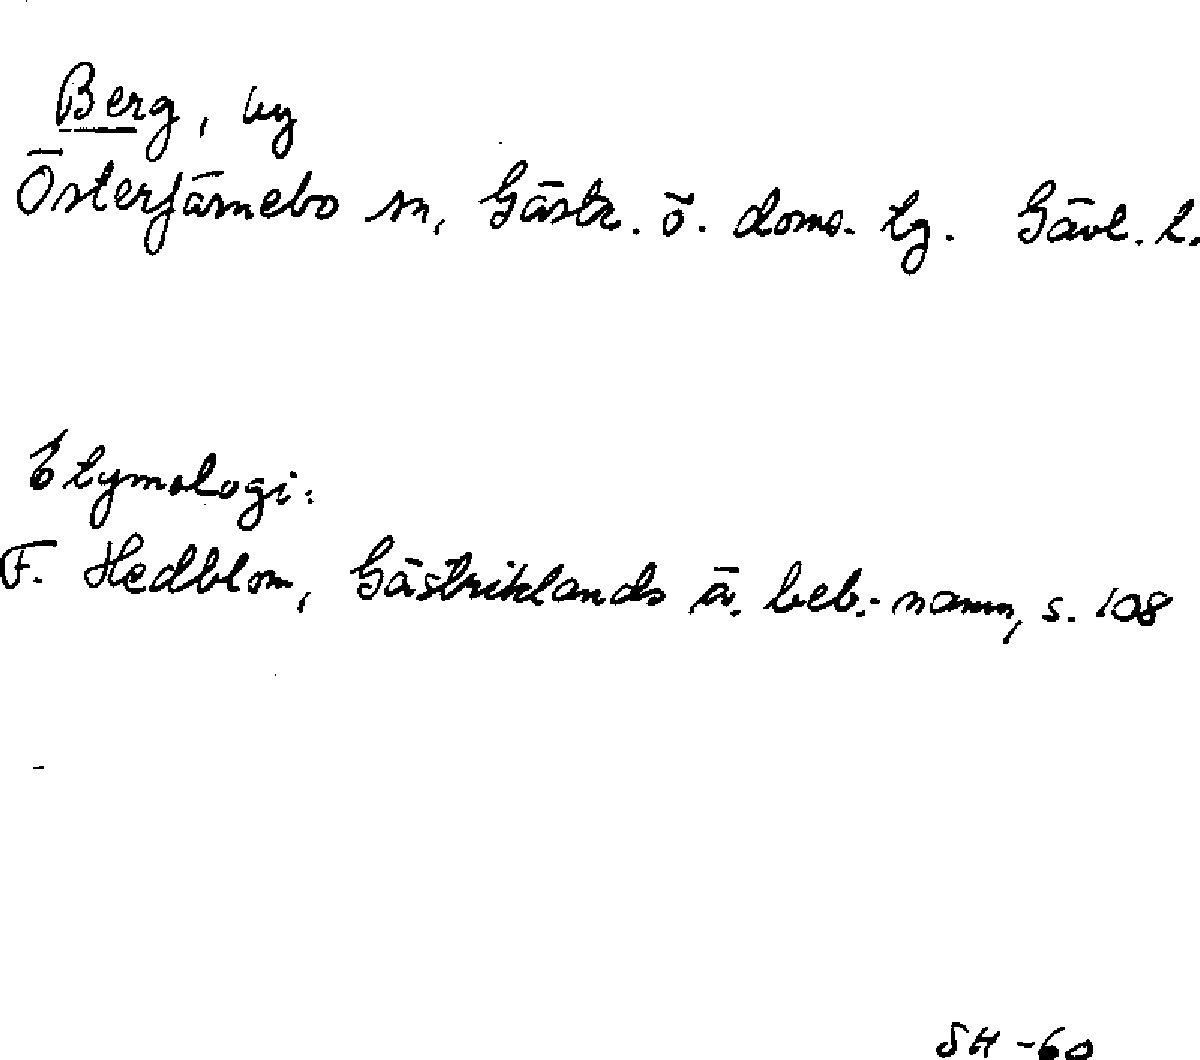 Berg, by
Österfärnebo sn, Gästr. ö. doms. tg. Gävl. l.
Etymologi:
F. Hedblom, Gästriklands ä. beb.-namn, s. 108
SH -60